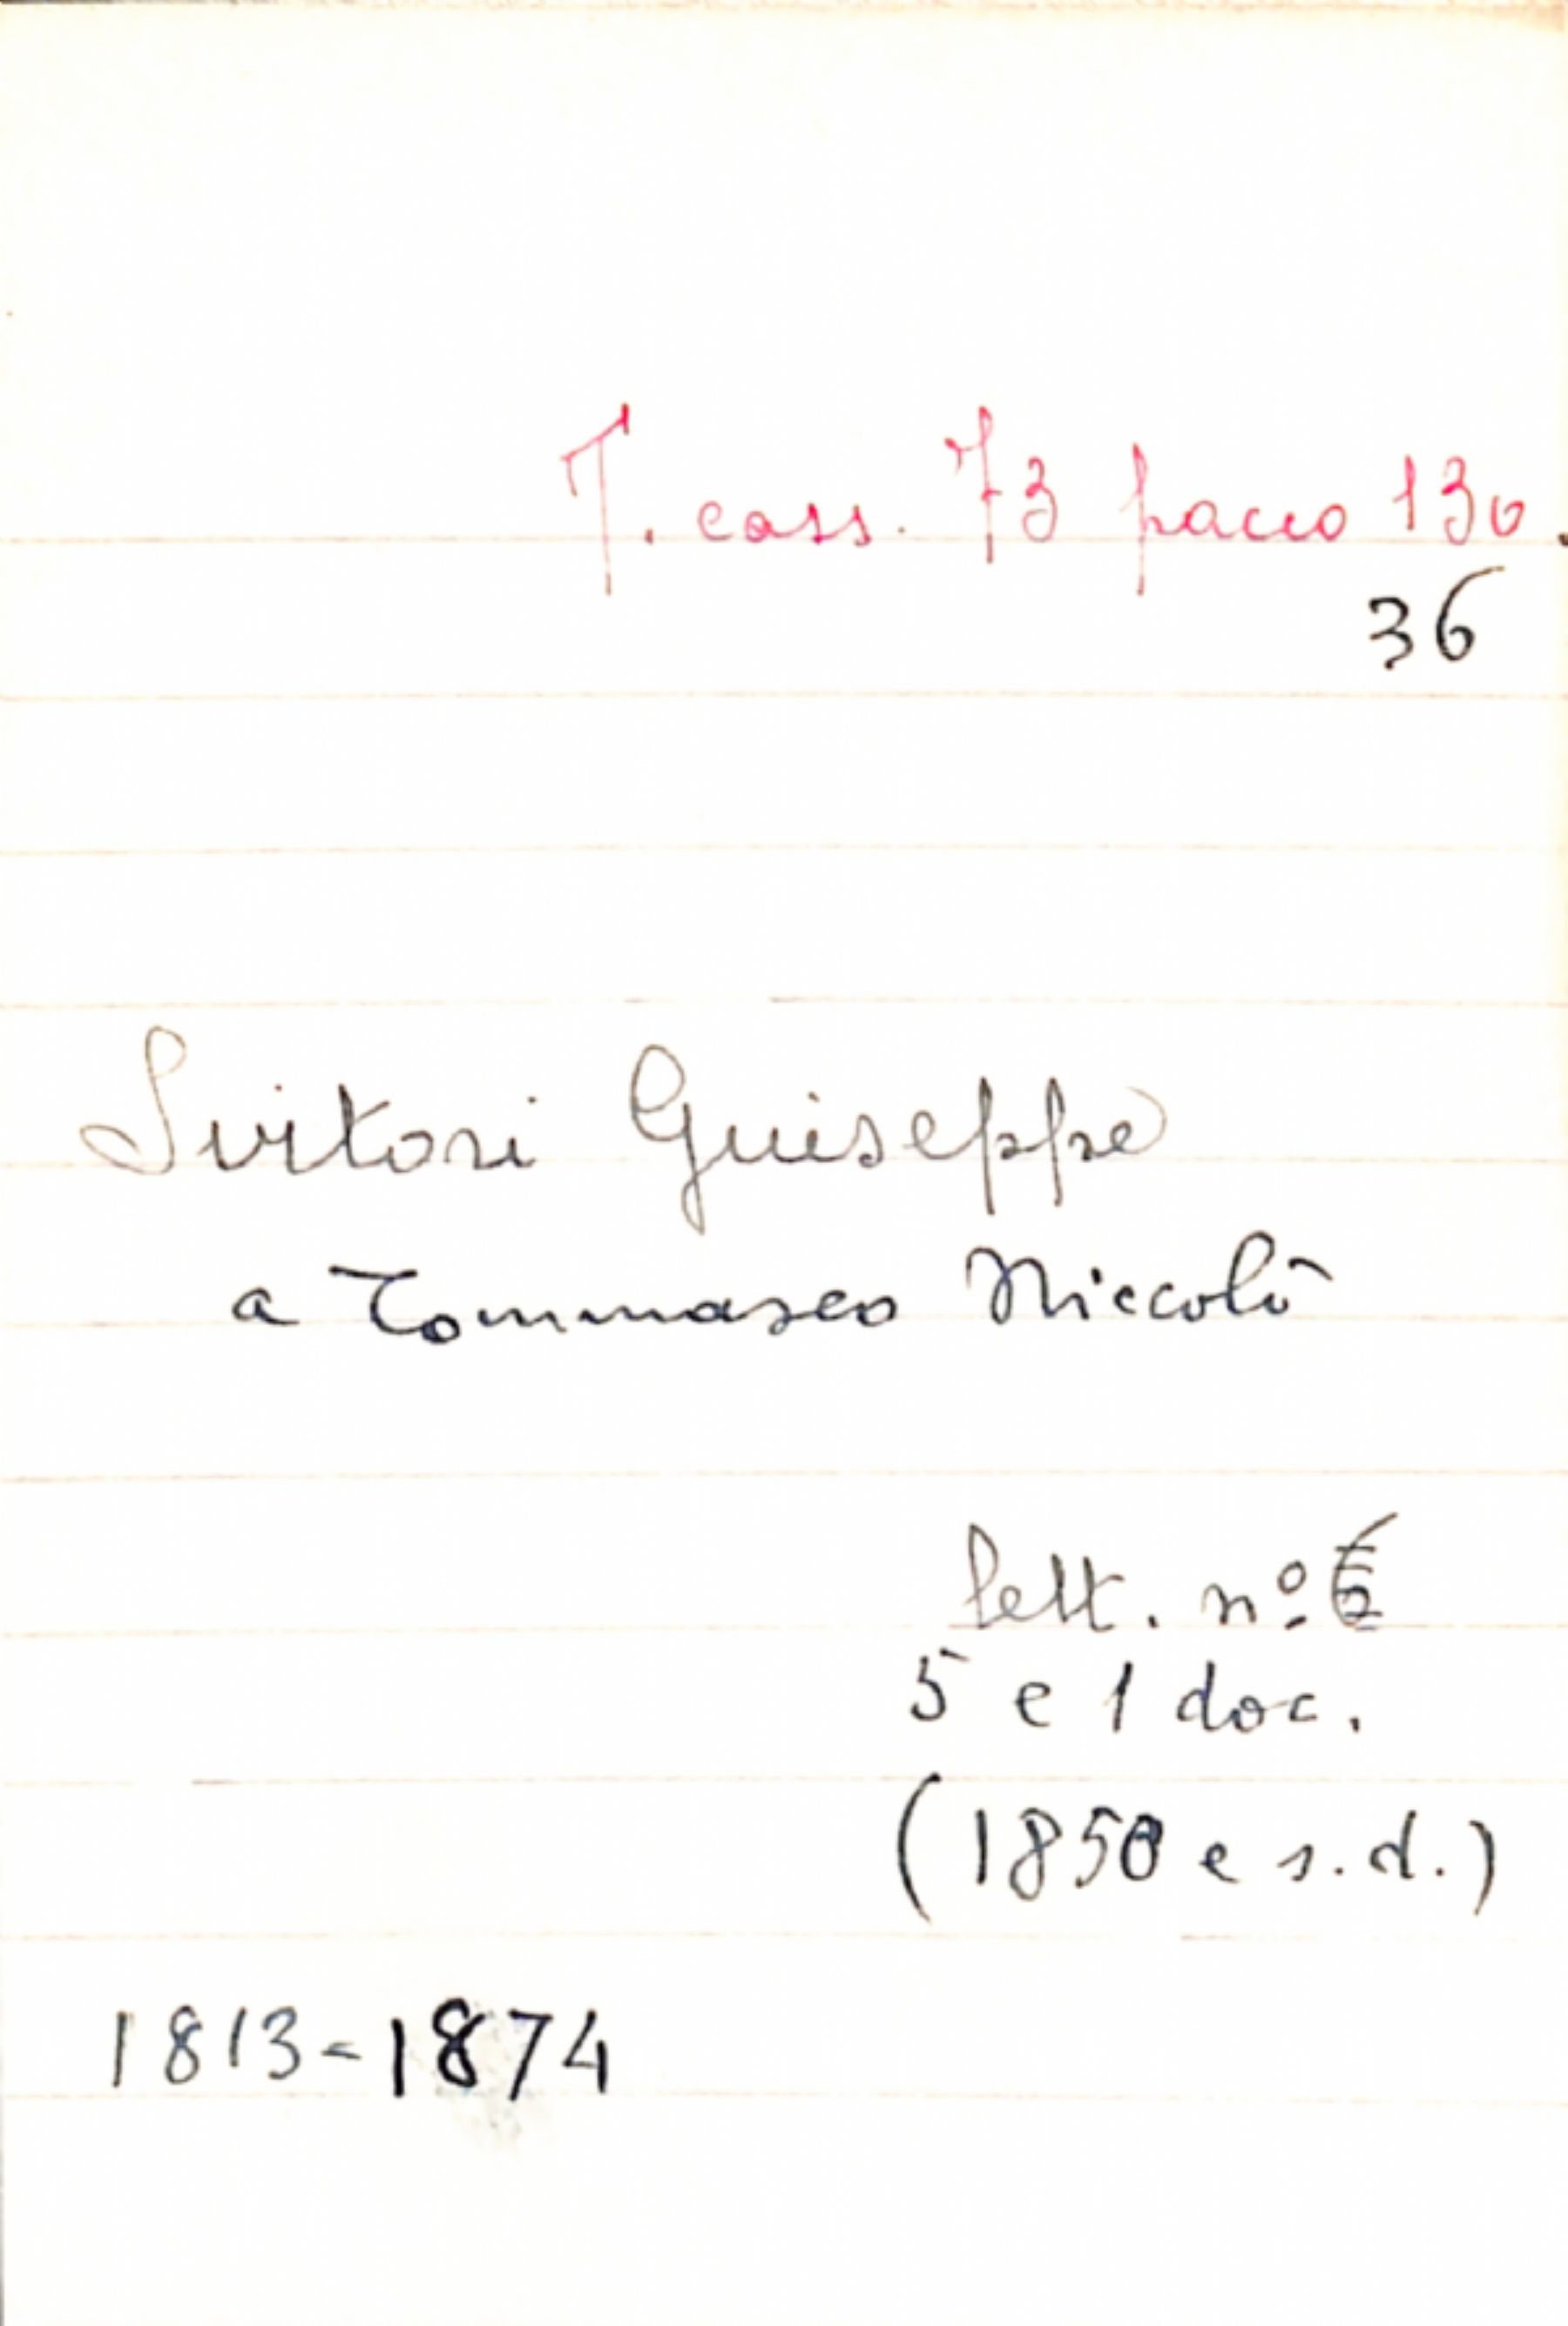 T. cass. 73 pacco 130.
36
Sirtori Giuseppe
a Tommaseo Niccolò
lett. nº
5 e 1 doc.
(1850 e s.d.)
1813-1874